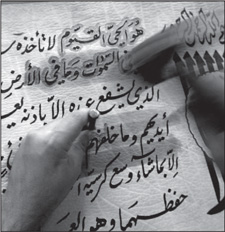 هو الحيّ القيّوم لا تأخذه
السموات وما في الأرض
الذي يشفع عنده إلا بإذنه
أيديهم وما خلفهم
إلا بما شاء وسع كرسيه
حفظهما وهو